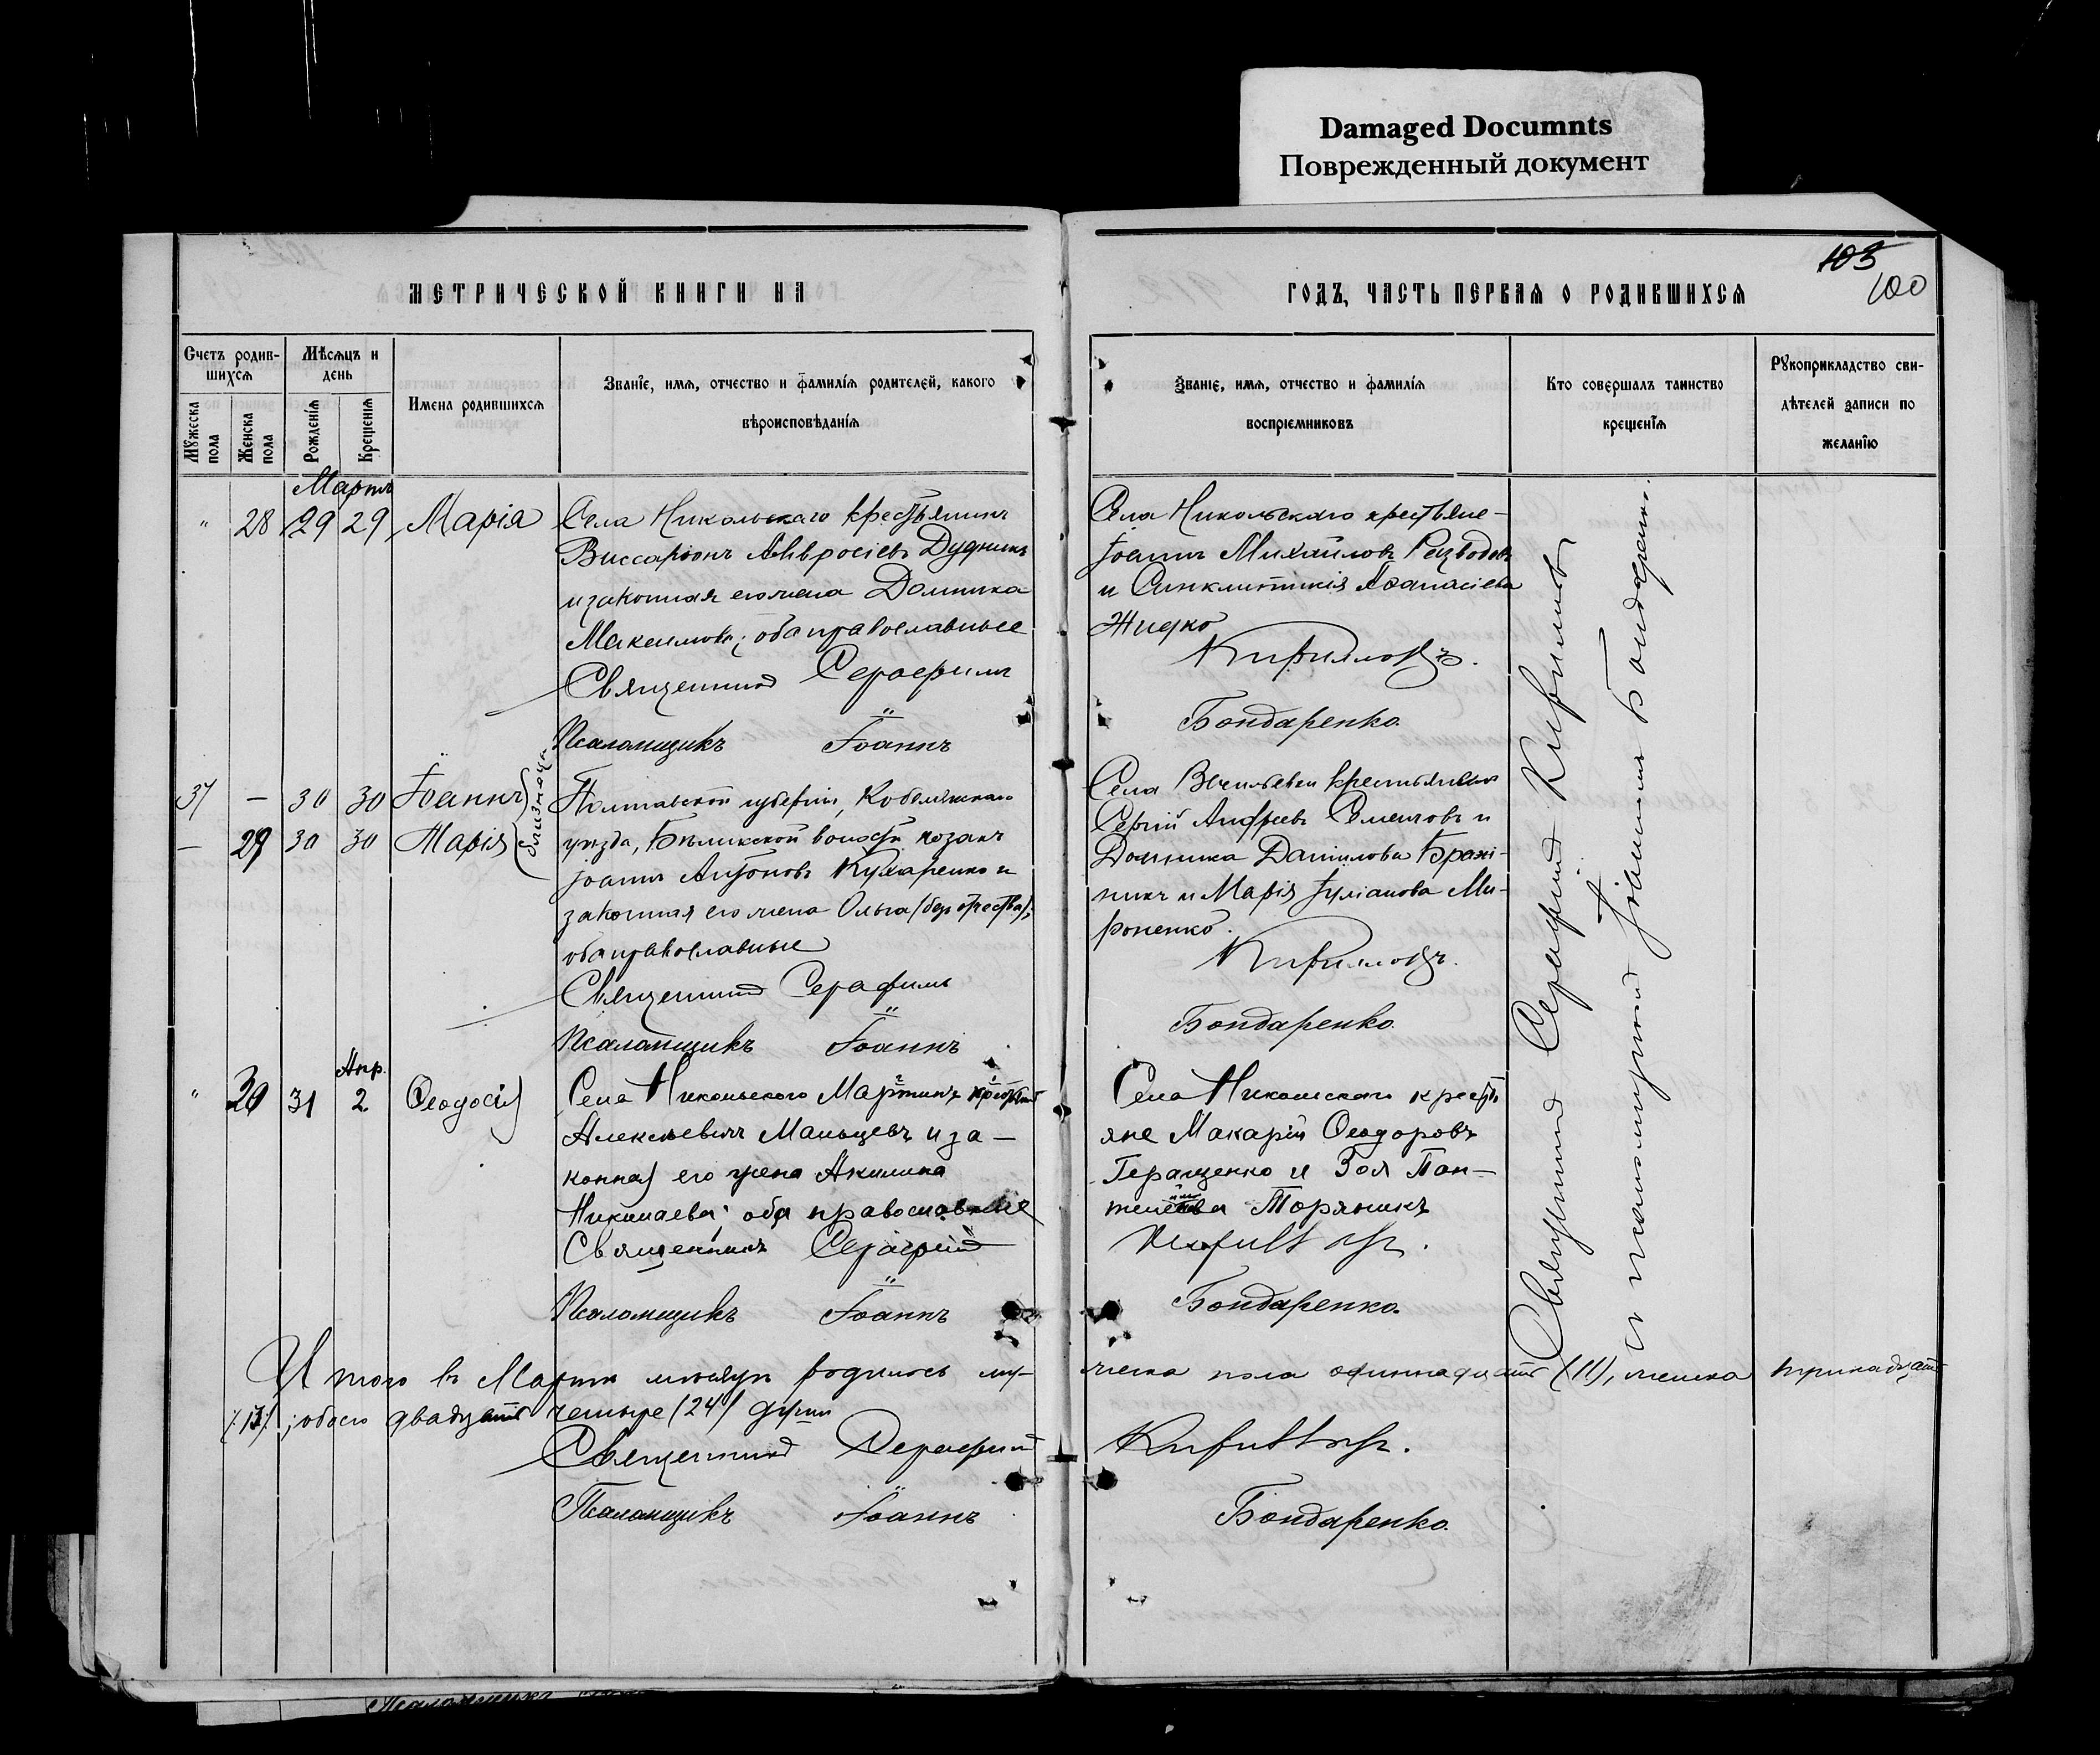 Damaged Documnts
Поврежденный документ
103
100
МЕТРИЧЕСКОЙ КНИГИ НА
ГОДЪ, ЧАСТЬ ПЕРВАЯ О РОДИВШИХСЯ
Счетъ родив-
шихся
Мѣсяцъ и
день
Мужеска
пола
Женска
пола
Рожденія
Крещенія
Имена родившихся
Званіе, имя, отчество и фамилія родителей, какого
вѣроисповѣданія
Званіе, имя, отчество и фамилія
воспріемниковъ
Кто совершалъ таинство
крещенія
Рукоприкладство сви-
дѣтелей записи по
желанію
Мартъ
" 28 29 29 Марія
Села Никольскаго крестьянинъ
Виссаріонъ Амвросіевъ Дудникъ
и законная его жена Домника
Максимова; оба православные
Священникъ Серафимъ
Псаломщикъ Іоаннъ
Села Никольскаго крестьяне
Іоаннъ Михайловъ
и Синклитикія Афанасіева
Жидко
Кирилловъ.
Бондаренко.
37 — 30 30 Іоаннъ
— 29 30 30 Марія
близнецы
Полтавской губерніи, Кобелякскаго
уѣзда, Бѣликской волости козакъ
Іоаннъ Антоновъ Кухаренко и
законная его жена Ольга (безъ отчества);
оба православные
Священникъ Серафимъ
Псаломщикъ Іоаннъ
Села Васильевки крестьяне
Сергій Андреевъ Семенговъ и
Домника Даніилова Бражі-
никъ и Марія Іуліанова Ми-
роненко.
Кирилловъ.
Бондаренко.
Апр.
" 30 31 2 Ѳеодосія
Села Никольского Мартинъ крестьян
Алексѣевичъ Мальцевъ и за-
конная его жена Акилина
Николаева; оба православные
Священникъ Серафимъ
Псаломщикъ Іоаннъ
Села Никольскаго кресть
яне Макарій Ѳеодоровъ
Геращенко и Зоя Пан-
Торяникъ
Кирилловъ.
Бондаренко.
Священникъ Серафимъ Кирилловъ
и псаломщикъ Іоаннъ Бондаренко.
Итого въ Мартѣ мѣсяцѣ родилось му-
жеска пола одиннадцать (11), женска тринадцать
(13); обоего двадцать четыре (24) души
Священникъ Серафимъ
Кирилловъ.
Псаломщикъ Іоаннъ
Бондаренко.